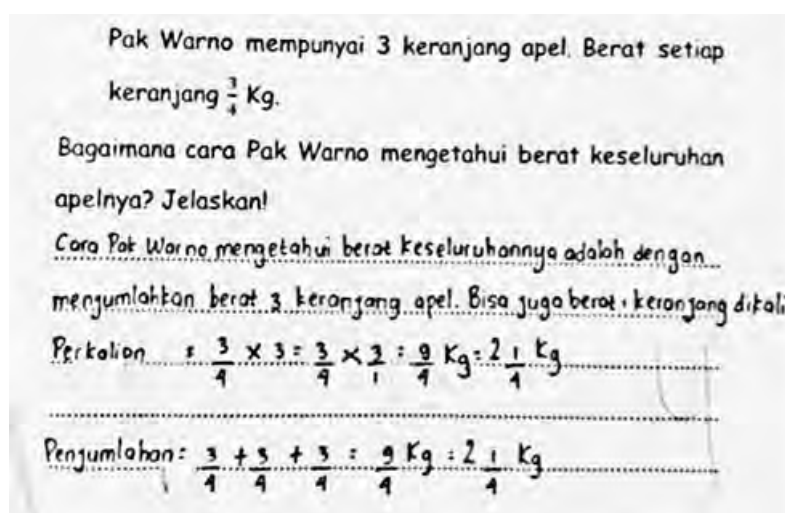 Pak Warno mempunyai 3 keranjang apel. Berat setiap
keranjang 3/4 Kg.
Bagaimana cara Pak Warno mengetahui berat keseluruhan
apelnya? Jelaskan!
Cara Pak Warno mengetahui berat keseluruhannya adalah dengan
menjumlahkan berat 3 keranjang apel. Bisa juga berat 1 keranjang dikali
Perkalian : 3/4 × 3 = 3/4 × 3/1 = 9/4 Kg = 2 1/4 Kg
Penjumlahan = 3/4 + 3/4 + 3/4 = 9/4 Kg = 2 1/4 Kg